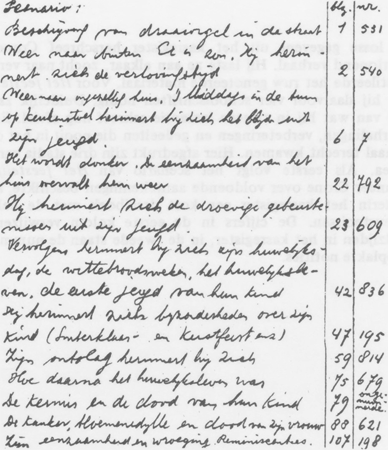 Scenario: blz. nr.
Beschrijving van draaiorgel in de straat 1 531
Weer naar binten. Er is zon. Hij herin-
nert zich de verlovingstijd 2 540
Weer naar ongezellig huis, 's Middags in de tuin
op keukenstoel herinnert hij zich het blijde uit
zijn jeugd 6 7
Het wordt donker. De eenzaamheid van het
huis overvalt hem weer 22 792
Hij herinnert zich de droevige gebeurte-
nissen uit zijn jeugd 23 609
Vervolgens herinnert hij zich zijn huwelijks-
dag, de wittebroodsweken, het huwelijksle-
ven, de eerste jeugd van hun kind 42 836
Hij herinnert zich bijzonderheden over zijn
kind (Sinterklaas- en Kerstfeest en) 47 195
Zijn ontslag herinnert hij zich 59 814
Hoe daarna het huwelijksleven was 75 679
De kermis en de dood van hun kind 79 ongenummerde
De kanker, bloemenidylle en dood van zijn vrouw 88 621
Zijn eenzaamheid en wroeging. Reminiscenties. 107 198